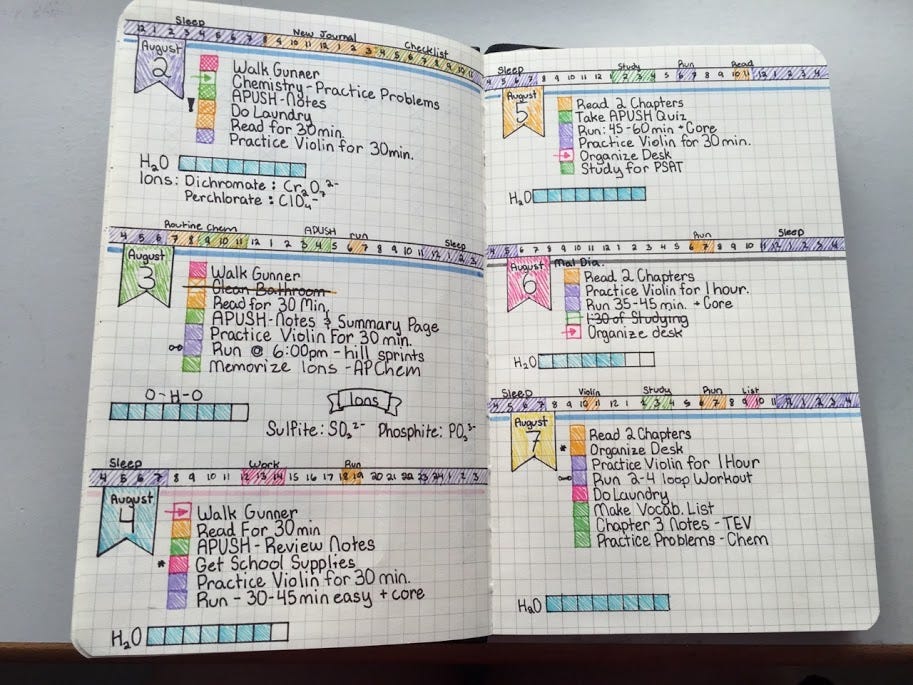 Sleep New Journal Checklist
12 1 2 3 4 5 6 7 8 9 10 11 12 1 2 3 4 5 6 7 8 9 10 11
August
2
Walk Gunner
Chemistry - Practice Problems
! APUSH - Notes
Do Laundry
Read for 30min.
Practice Violin for 30min.
H2O
Ions: Dichromate: Cr2O7 2-
Perchlorate: ClO4-
Routine Chem APUSH run Sleep
4 5 6 7 8 9 10 11 12 1 2 3 4 5 6 7 8 9 10 11 12 1 2 3
August
3
Walk Gunner
Clean Bathroom
Read for 30 Min.
APUSH - Notes & Summary Page
Practice Violin for 30 min.
Run @ 6:00pm - hill sprints
Memorize Ions - AP Chem
O-H-O
Ions
Sulfite: SO3 2- Phosphite: PO3 3-
Sleep Work Run
4 5 6 7 8 9 10 11 12 13 14 15 16 17 18 19 20 21 22 23 24 1 2 3
August
4
Walk Gunner
Read For 30 min
APUSH - Review Notes
* Get School Supplies
Practice Violin for 30 min.
Run - 30-45 min easy + core
H2O
Sleep Study Run Read
4 5 6 7 8 9 10 11 12 1 2 3 4 5 6 7 8 9 10 11 12 1 2 3 4
August
5
Read 2 Chapters
Take APUSH Quiz
Run: 45-60 min + Core
Practice Violin for 30 min.
Organize Desk
Study for PSAT
H2O
Run Sleep
4 5 6 7 8 9 10 11 12 1 2 3 4 5 6 7 8 9 10 11 12 1 2 3 4
August
6
Mal Dia.
Read 2 Chapters
Practice Violin for 1 hour.
Run 35-45 min. + Core
1:30 of Studying
Organize desk
H2O
Sleep Violin Study Run List
4 5 6 7 8 9 10 11 12 1 2 3 4 5 6 7 8 9 10 11 12 1 2 3 4
August
7
Read 2 Chapters
* Organize Desk
Practice Violin for 1 Hour
Run 2-4 loop Workout
Do Laundry
Make Vocab. List
Chapter 3 Notes - TEV
Practice Problems - Chem
H2O